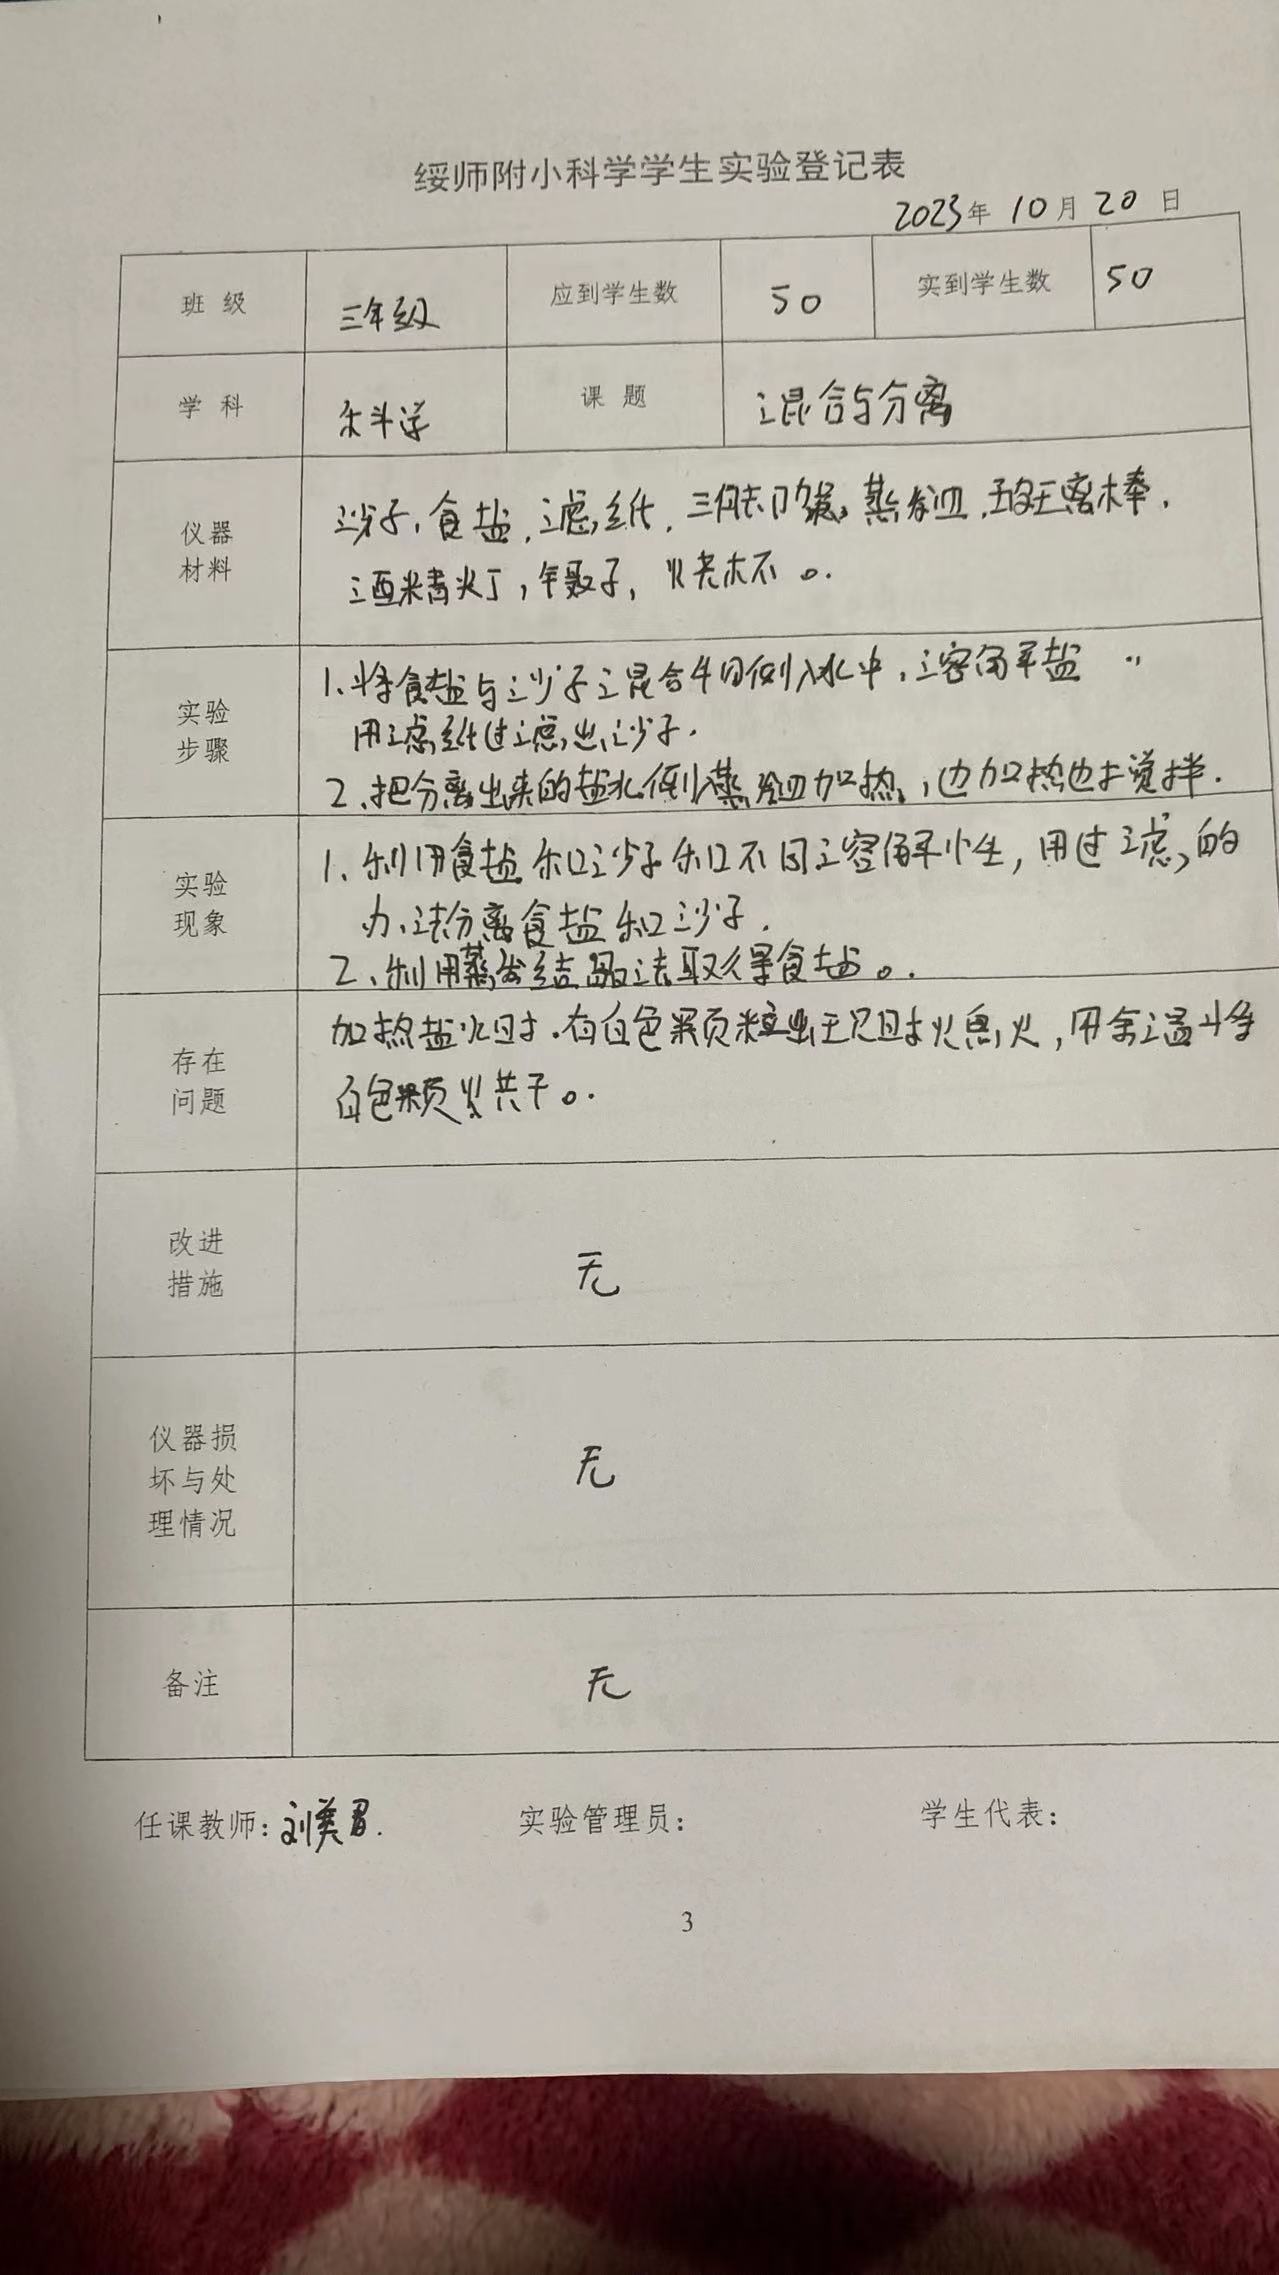 绥师附小科学学生实验登记表
2023年 10月 20日
班 级 三年级 应到学生数 50 实到学生数 50
学 科 科学 课 题 混合与分离
仪器材料
沙子,食盐,滤纸,三脚架,蒸发皿,玻璃棒,
酒精灯,镊子,烧杯。
实验步骤
1、将食盐与沙子混合物倒入水中,溶解盐
用滤纸过滤出沙子.
2、把分离出来的盐水倒入蒸发皿加热,边加热边搅拌.
实验现象
1、利用食盐和沙子和不同溶解性,用过滤的
办法分离食盐和沙子.
2、利用蒸发结晶法取得食盐。
存在问题
加热盐水时,有白色颗粒出现时熄火,用余温将
白色颗烘干。
改进措施
无
仪器损坏与处理情况
无
备注
无
任课教师: 实验管理员: 学生代表:
3